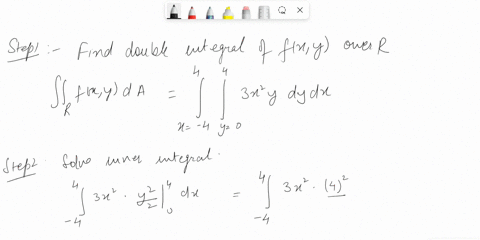 Step1 :- Find double integral of f(x,y) over R
∬_R f(x,y) dA = ∫_{x=-4}^{4} ∫_{y=0}^{4} 3x²y dy dx
Step2 Solve inner integral.
∫_{-4}^{4} 3x² · y²/2 |_0^4 dx = ∫_{-4}^{4} 3x² · (4)²